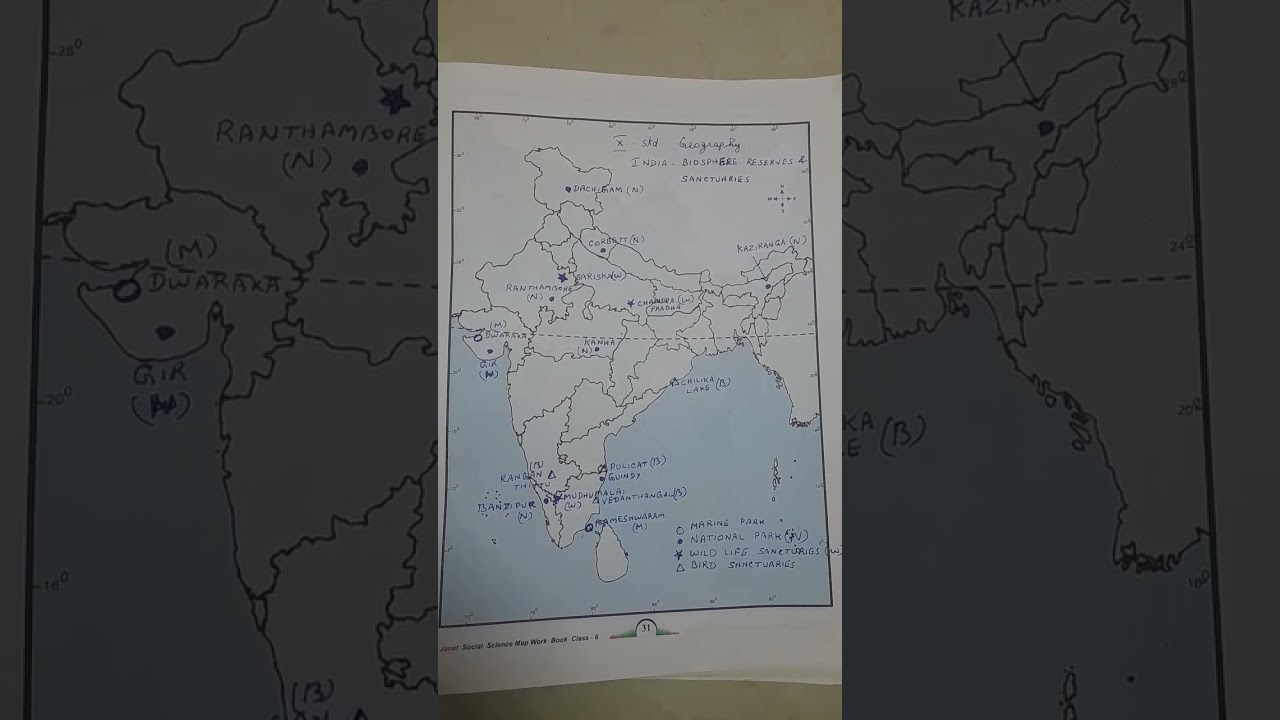 X - std Geography
INDIA - BIOSPHERE RESERVES &
SANCTUARIES
DACHIGAM (N)
CORBETT (N)
KAZIRANGA (N)
SARISKA (W)
RANTHAMBORE
(N)
CHANDRA (W)
PRABHA
(M)
DWARAKA
KANHA
(N)
GIR
(N)
CHILIKA
LAKE (B)
(B)
RANGAN
THITTU
PULICAT (B)
GUINDY
BANDIPUR
(N)
MUDHUMALAI
(W)
VEDANTHANGAL (B)
RAMESHWARAM
(M)
MARINE PARK
NATIONAL PARK (N)
WILD LIFE SANCTURIES (W)
BIRD SANCTUARIES
31
Janet Social Science Map Work Book Class - 6
28⁰
RANTHAMBORE
(N)
(M)
DWARAKA
GIR
(N)
20⁰
16⁰
(B)
KAZIRANGA
24⁰
20⁰
(B)